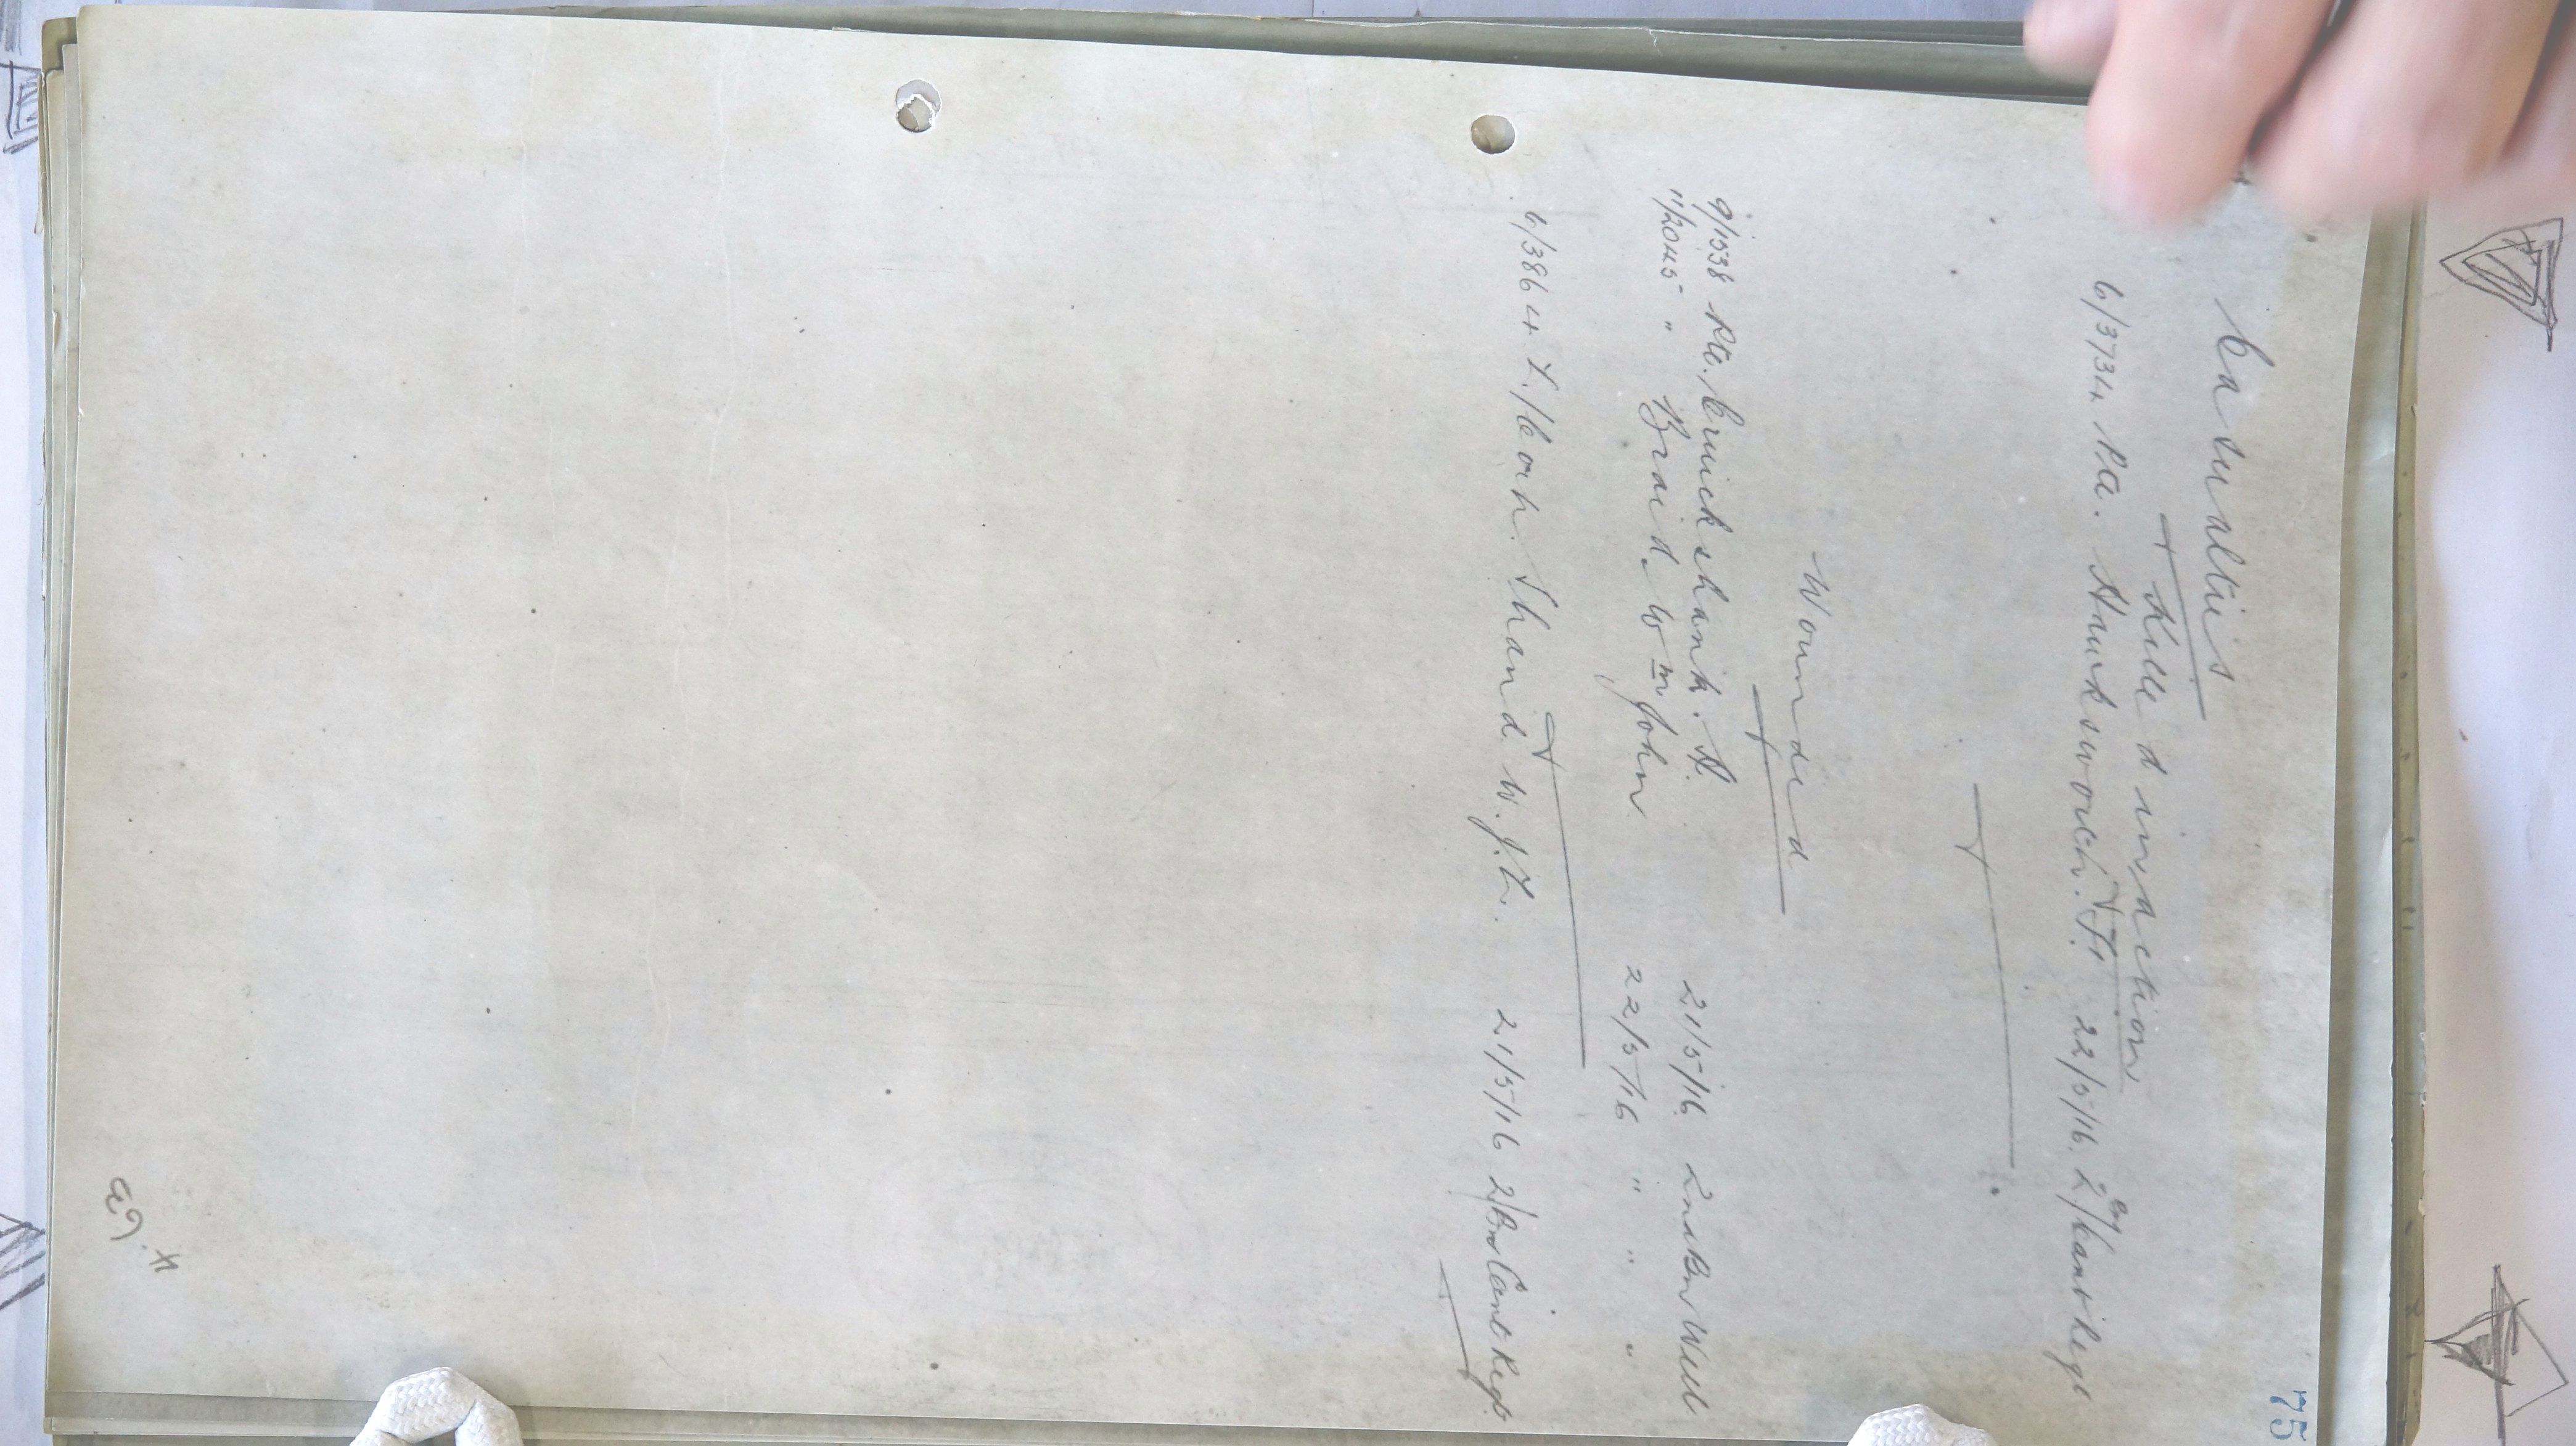 75
Casualties
Killed in action
6/3734 Pte. Hawksworth. F. 22/5/16. 2/Bn/Cant Regt
Wounded
9/1538 Pte. Cruickshank. A. 21/5/16 2nd Bn Well
11/2045 " Braid. Wm John 22/5/16 " " "
6/3864 L/Corp. Shand W. J. L. 21/5/16 2/Bn Cant Regt